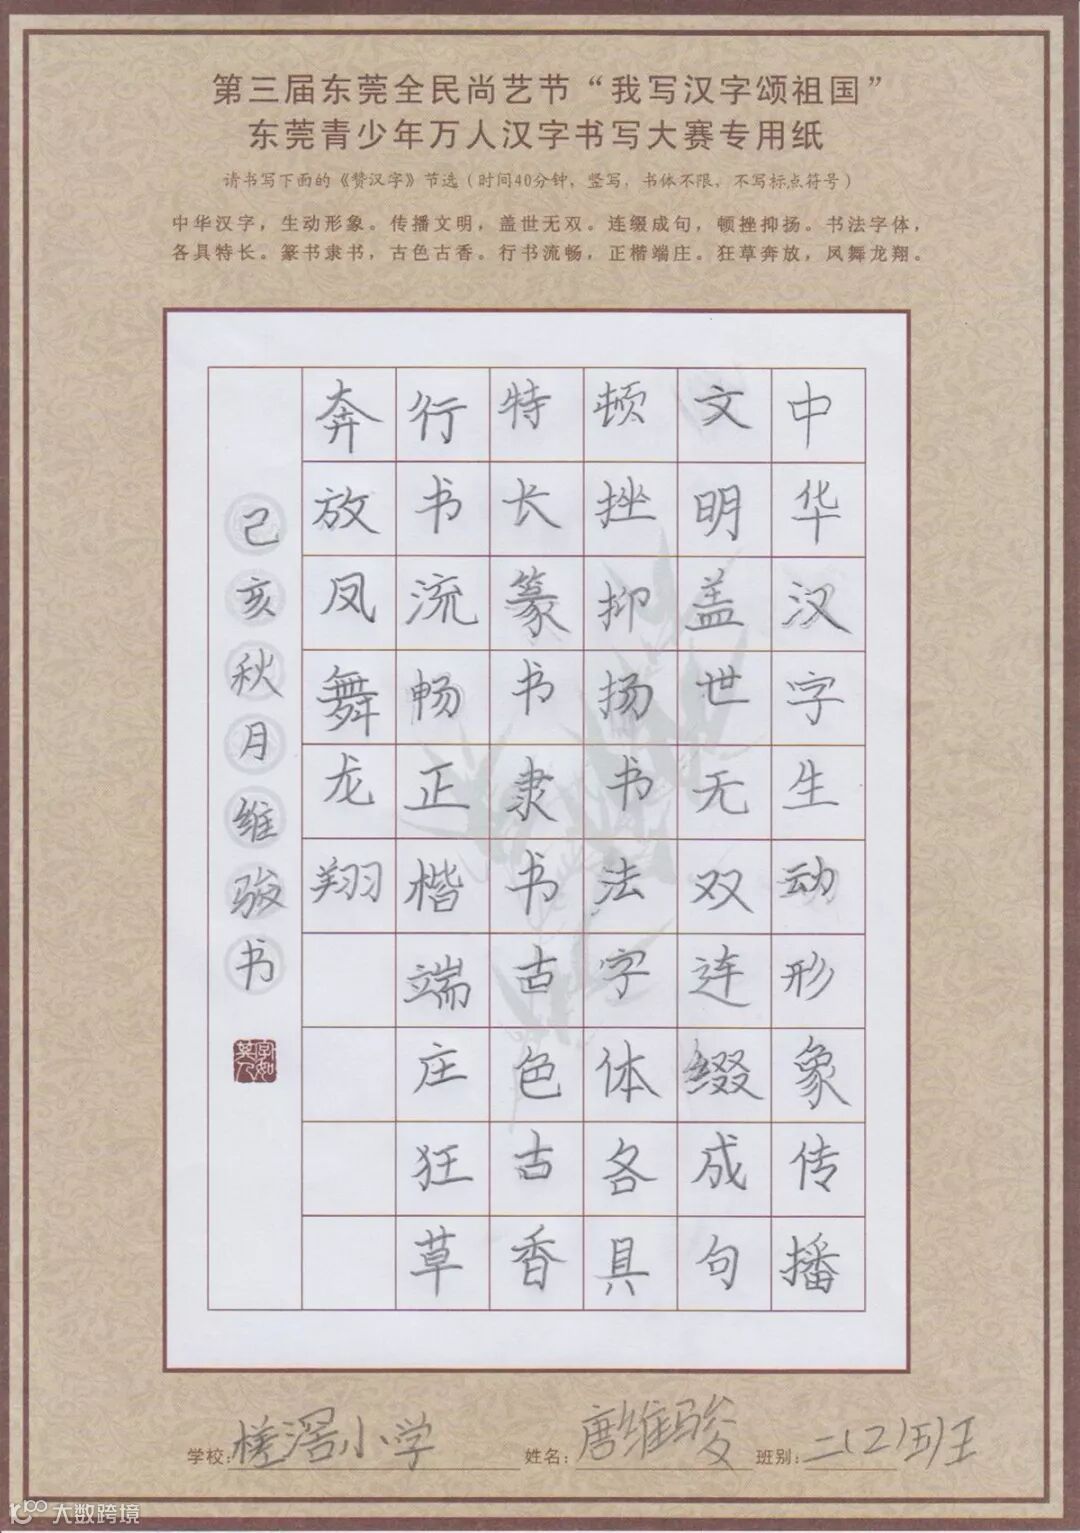 第三届东莞全民尚艺节“我写汉字颂祖国”
东莞青少年万人汉字书写大赛专用纸
请书写下面的《赞汉字》节选（时间40分钟，竖写，书体不限，不写标点符号）
中华汉字，生动形象。传播文明，盖世无双。连缀成句，顿挫抑扬。书法字体，
各具特长。篆书隶书，古色古香。行书流畅，正楷端庄。狂草奔放，凤舞龙翔。
中华汉字生动形象传播
文明盖世无双连缀成句
顿挫抑扬书法字体各具
特长篆书隶书古色古香
行书流畅正楷端庄狂草
奔放凤舞龙翔
己亥秋月维骏书
字如其人
学校:槎滘小学 姓名:唐维骏 班别:二(2)班
大数跨境